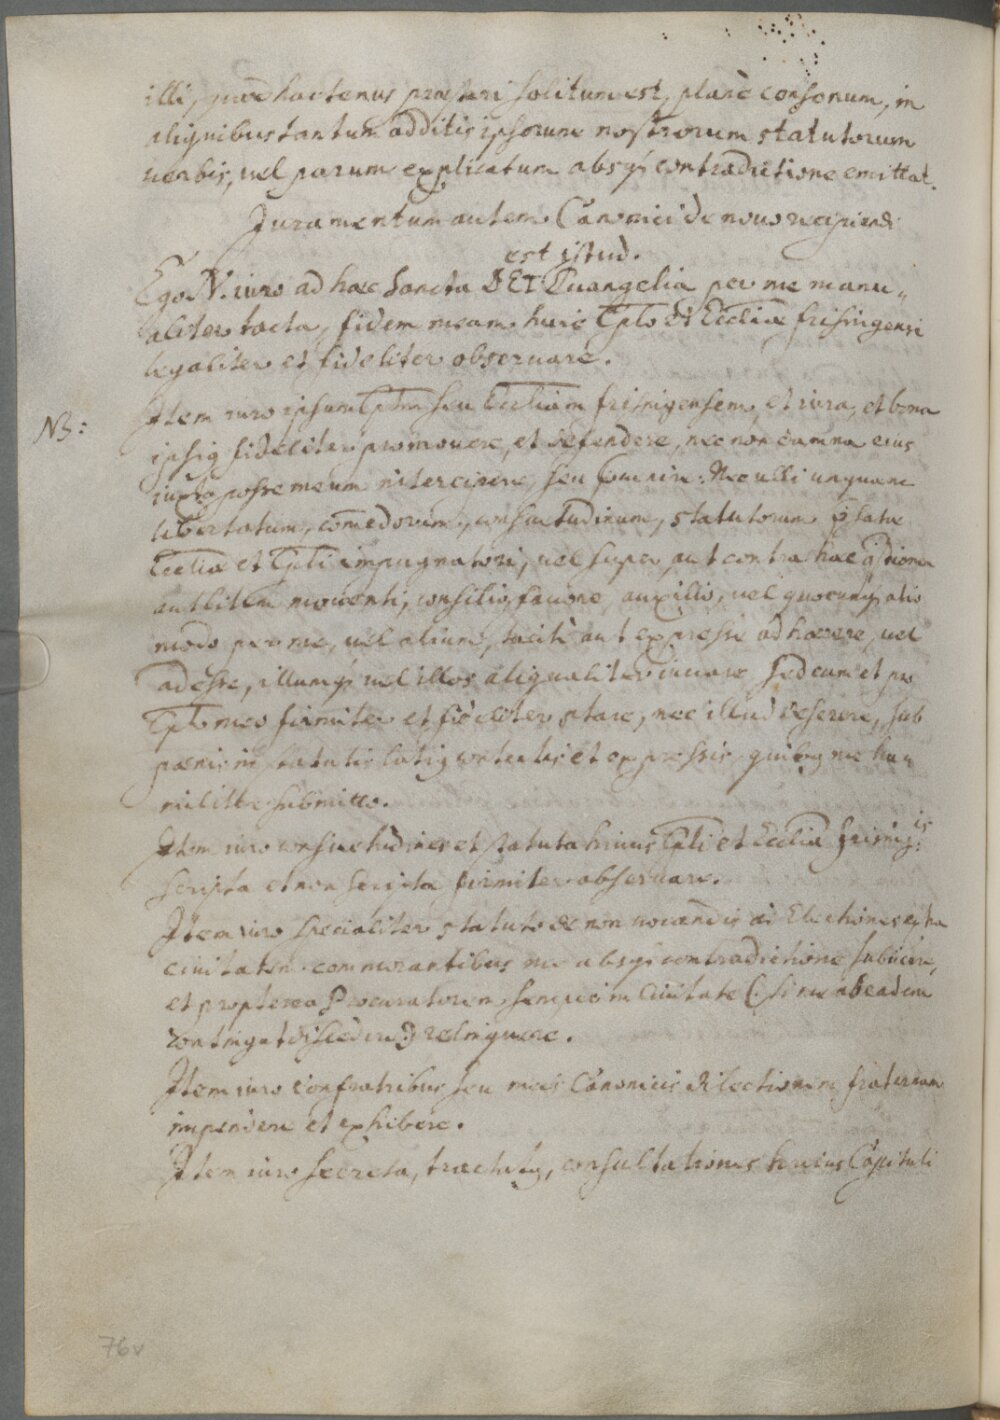 illi, quod hactenus praestari solitum est, planè consonum, in
aliquibus tantum additis ipsorum nostrorum statutorum
uerbis, uel parum explicatum absq̃ contradictione emittat.
Juramentum autem Canonici de nouo recipiendi
est istud.
Ego N. iuro ad haec Sancta DEI Euangelia per me manu„
aliter tacta, fidem meam huic Cplo et Eccliae frisingensi
legaliter et fideliter obseruare.
NB:
Item iuro ipsum Cplm seu Eccliam frisingensem, et iura, et bona
ipsiq fideliter promouere, et defendere, nec non damna eius
iuxta posse meum praecauere. Nec ulli unquam
libertatum, comedorum, consuetudinum, statutorum p̃fatae
Eccliae et Cpli impugnatori, uel super aut contra haec q̃stionem
aut litem mouenti, consilio, fauore, auxilio, uel quocunq̃ alio
modo per me, uel alium, tacitè aut expressè adhaerere, uel
adesse, illumq̃ uel illos aliqualiter iuuare. Sed cum et pro
Cplo meo firmiter et fideliter stare, nec illud deserere, sub
poenis in statutis latiq contentis et expressis, quibq me hu„
militer submitto.
Item iuro consuetudines et statuta huius Cpli et Eccliae frising:is
scripta et non scripta firmiter obseruare.
Item iuro specialiter statuto de non uocandis ad Electiones extra
ciuitatem commorantibus me absq̃ contradictione subiicere,
et propterea Procuratorem semper in Ciuitate (: si me ab eadem
contingat discedere :) relinquere.
Item iuro confratribus seu meis Canonicis dilectionem fraternam
impendere et exhibere.
Item iuro secreta, tractatq, consultationes huius Capituli
76v